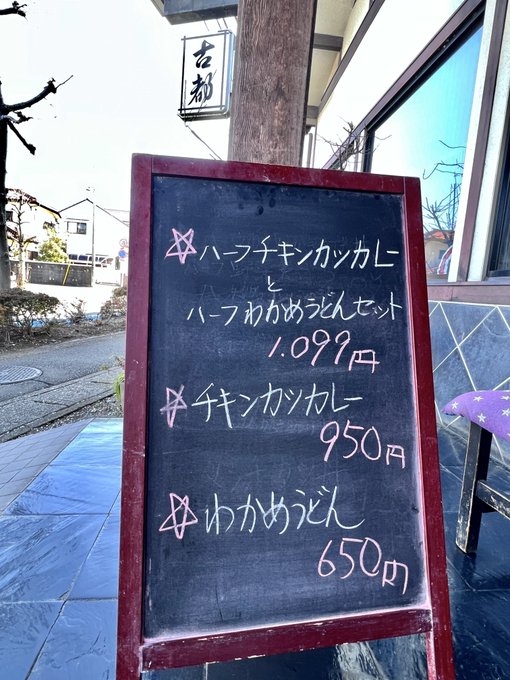 古都
☆ハーフチキンカツカレー
と
ハーフわかめうどんセット
1.099円
☆チキンカツカレー
950円
☆わかめうどん
650円